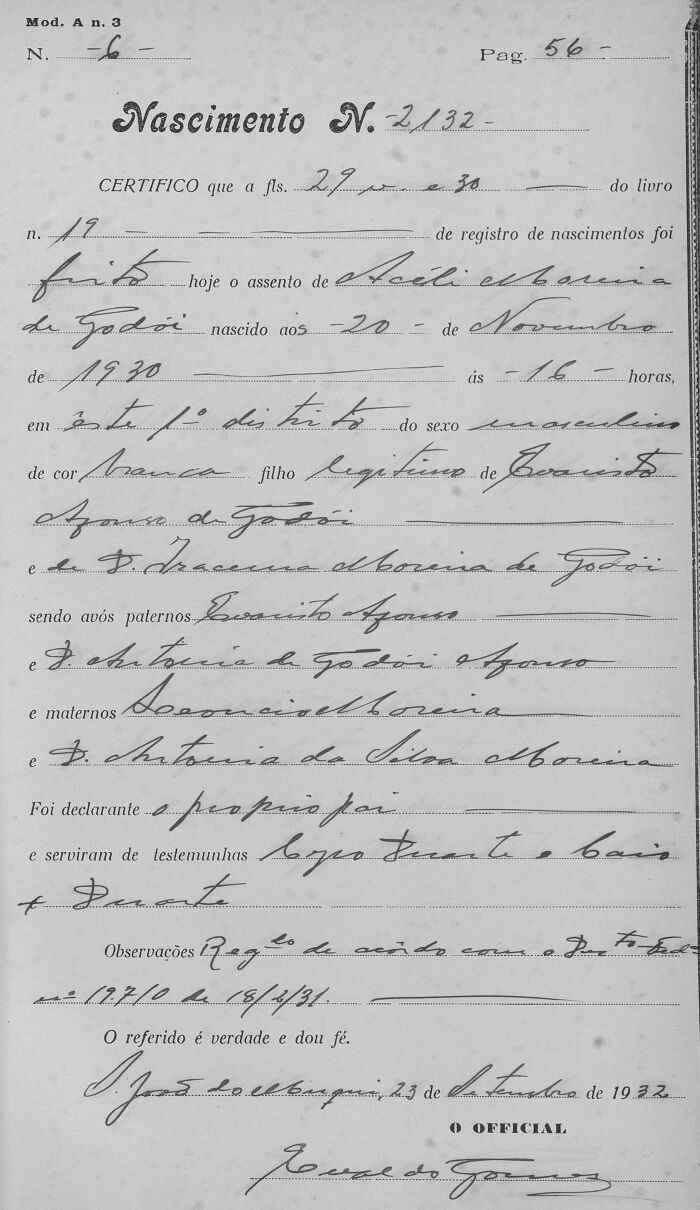 Mod. A n. 3
N. -6- Pag. 56-
Nascimento N. -2132-
CERTIFICO que a fls. 29 v. e 30 do livro
n. 19 - de registro de nascimentos foi
feito hoje o assento de Acéli Moreira
de Godói nascido aos -20- de Novembro
de 1930 ás -16- horas,
em êste 1º distrito do sexo masculino
de cor branca filho legitimo de Evaristo
Afonso de Godói
e de D. Iracema Moreira de Godói
sendo avós paternos Evaristo Afonso
e D. Antonia de Godói Afonso
e maternos Leoncio Moreira
e D. Antonia da Silva Moreira
Foi declarante o proprio pai
e serviram de testemunhas Cyro Duarte e Caio
Duarte
Observações Reg.do de acôrdo com o Dec.to Fed.
nº 19.710 de 18/2/31.
O referido é verdade e dou fé.
S. João do Muqui, 23 de Setembro de 1932
O OFFICIAL
Evaldo Gomes